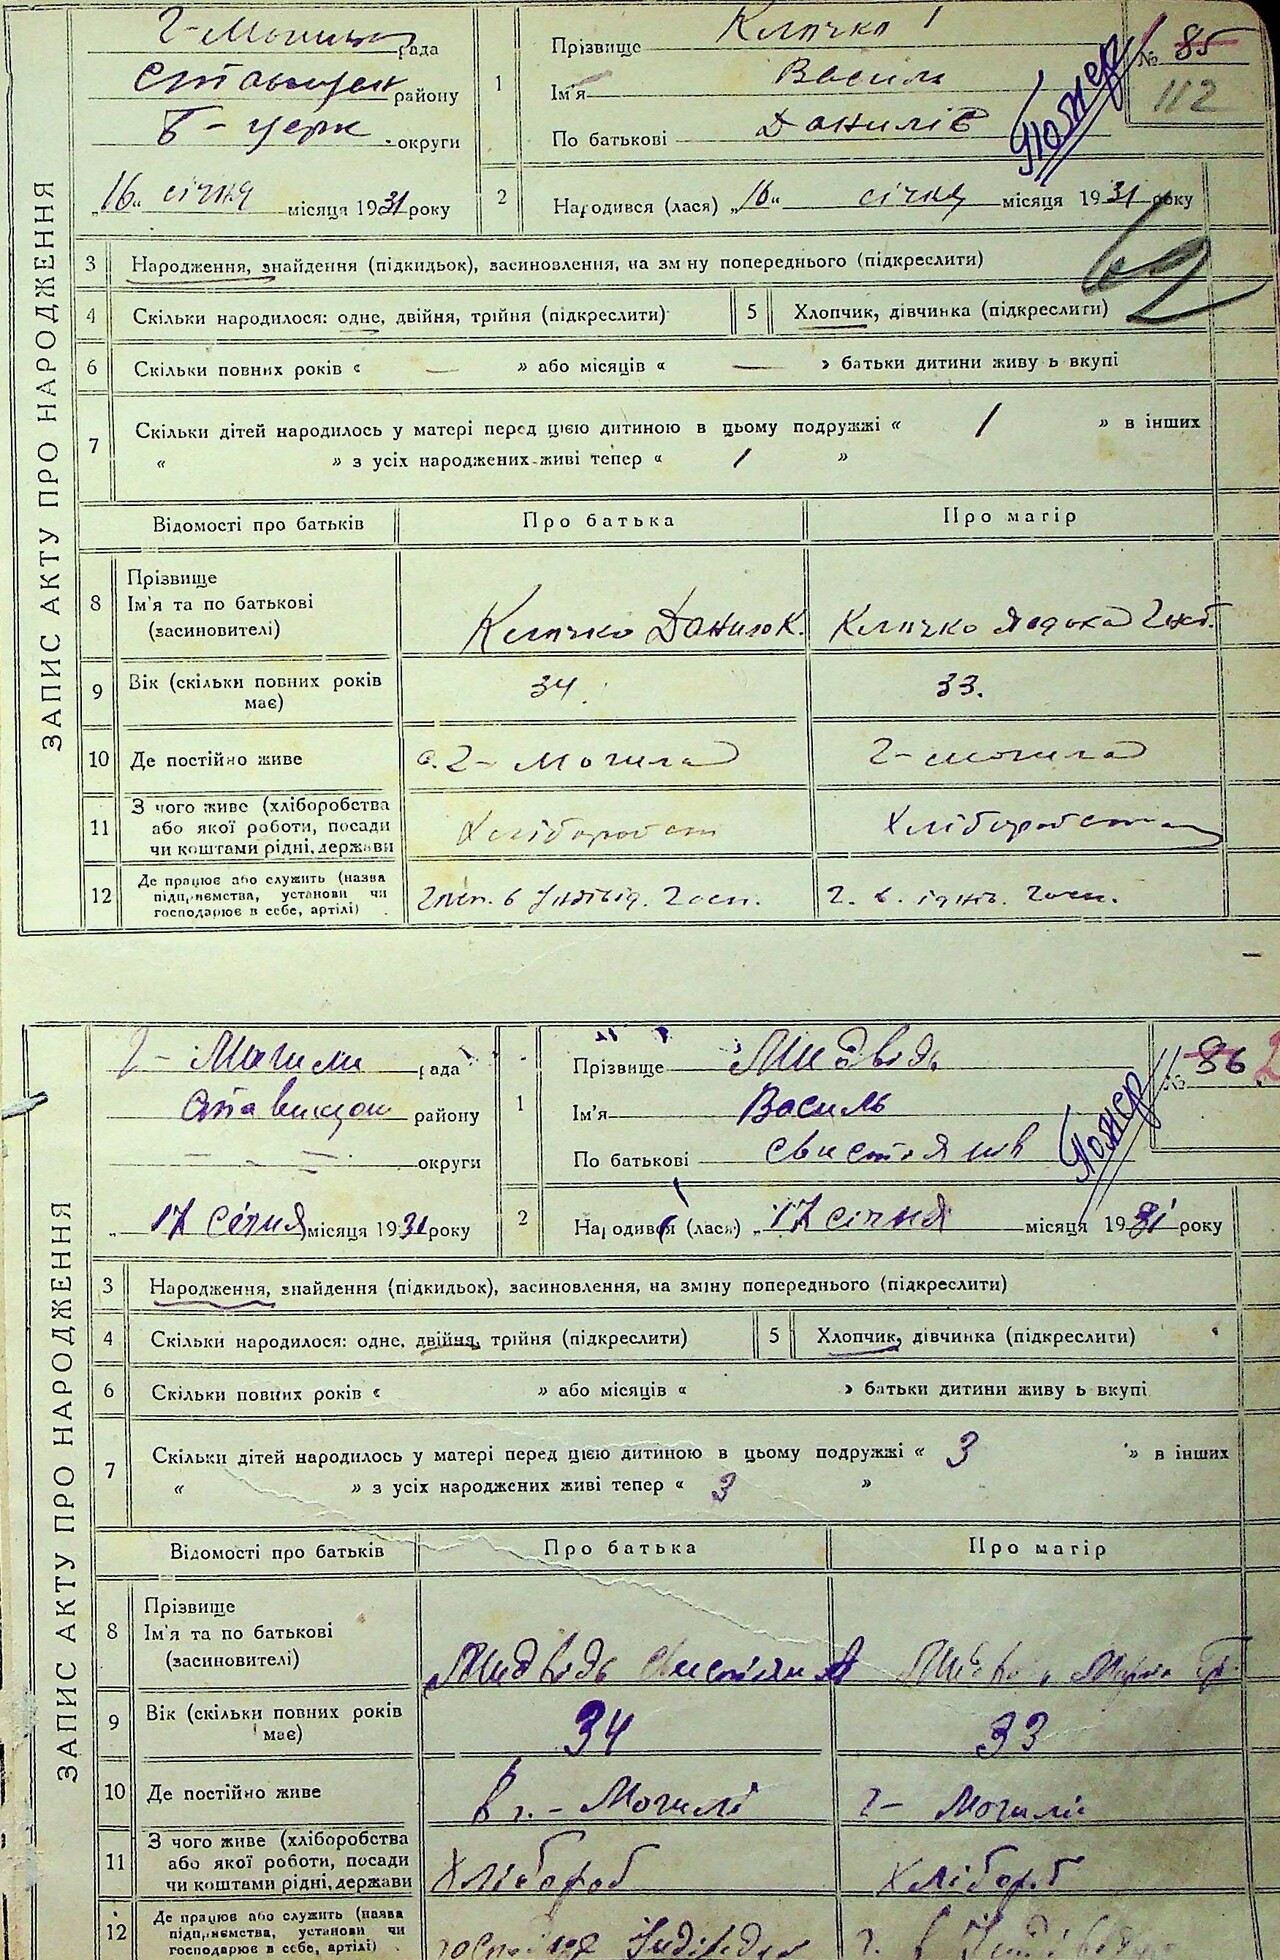 ЗАПИС АКТУ ПРО НАРОДЖЕННЯ
рада
району
Б-церк округи
„16“ січня місяця 1931 року
1
Прізвище Кличко
Ім'я Василь
По батькові Данилів
№ 85
112
Помер
2
Народився (лася) „16“ січня місяця 1931 року
62
3 Народження, знайдення (підкидьок), засиновлення, на зміну попереднього (підкреслити)
4 Скільки народилося: одне, двійня, трійня (підкреслити)
5 Хлопчик, дівчинка (підкреслити)
6 Скільки повних років « — » або місяців « — » батьки дитини живуть вкупі
7 Скільки дітей народилось у матері перед цією дитиною в цьому подружжі « 1 » в інших
« » з усіх народжених живі тепер « 1 »
Відомості про батьків Про батька Про матір
8 Прізвище
Ім'я та по батькові
(засиновителі)
Кличко Данило К. Кличко Явдоха
9 Вік (скільки повних років має) 34. 33.
10 Де постійно живе с. Г-Могила Г-могила
11 З чого живе (хліборобства
або якої роботи, посади
чи коштами рідні, держави
Хлібороб
12 Де працює або служить (назва
підприємства, установи чи
господарює в себе, артілі)
Госп. в Індивід. Госп. Г. в. індив. Госп.
ЗАПИС АКТУ ПРО НАРОДЖЕННЯ
Г- Могили рада
району
округи
„ 17 січня місяця 1931 року
1
Прізвище Мидвідь
Ім'я Василь
По батькові
№ 86
2
Помер
2
Народився (лася) „17 січня місяця 1931 року
3 Народження, знайдення (підкидьок), засиновлення, на зміну попереднього (підкреслити)
4 Скільки народилося: одне, двійня, трійня (підкреслити)
5 Хлопчик, дівчинка (підкреслити)
6 Скільки повних років « » або місяців « » батьки дитини живуть вкупі
7 Скільки дітей народилось у матері перед цією дитиною в цьому подружжі « 3 » в інших
« » з усіх народжених живі тепер « 3 »
Відомості про батьків Про батька Про матір
8 Прізвище
Ім'я та по батькові
(засиновителі)
Мидвідь
9 Вік (скільки повних років має) 34 33
10 Де постійно живе в г.- Могилі г- Могилі
11 З чого живе (хліборобства
або якої роботи, посади
чи коштами рідні, держави
Хлібороб Хлібороб
12 Де працює або служить (назва
підприємства, установи чи
господарює в себе, артілі)